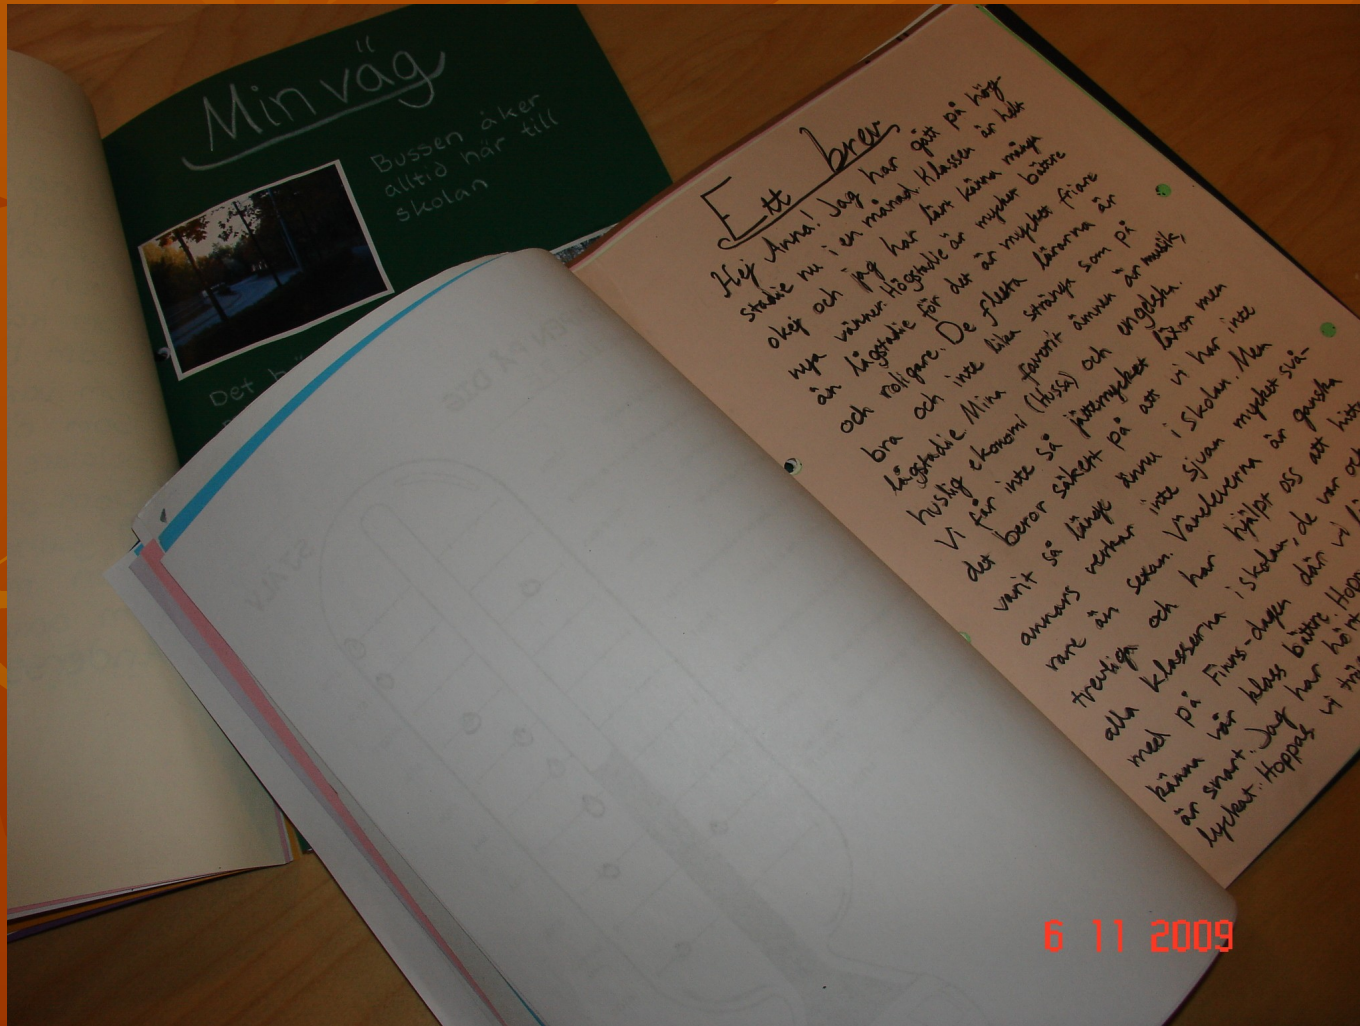 Min väg
Bussen åker
alltid här till
skolan
Det
Ett brev
Hej Anna! Jag har gått på hög-
stadie nu i en månad. Klassen är helt
okej och jag har lärt känna många
nya vänner. Högstadie är mycket bättre
än lågstadie för det är mycket friare
och roligare. De flesta lärarna är
bra och inte lika stränga som på
lågstadie. Mina favorit ämnen är musik,
huslig ekonomi (Hussa) och engelska.
Vi får inte så jättemycket läxor men
det beror säkert på att vi har inte
varit så länge ännu i skolan. Men
annars verkar inte sjuan mycket svå-
rare än sexan. Vändeverna är ganska
trevliga och har hjälpt oss att hitta
alla klasserna i skolan, de var och
med på Finns-dagen där vi
känna vår klass bättre.
är snart. Jag har hört
lyckat. Hoppas vi
6 11 2009